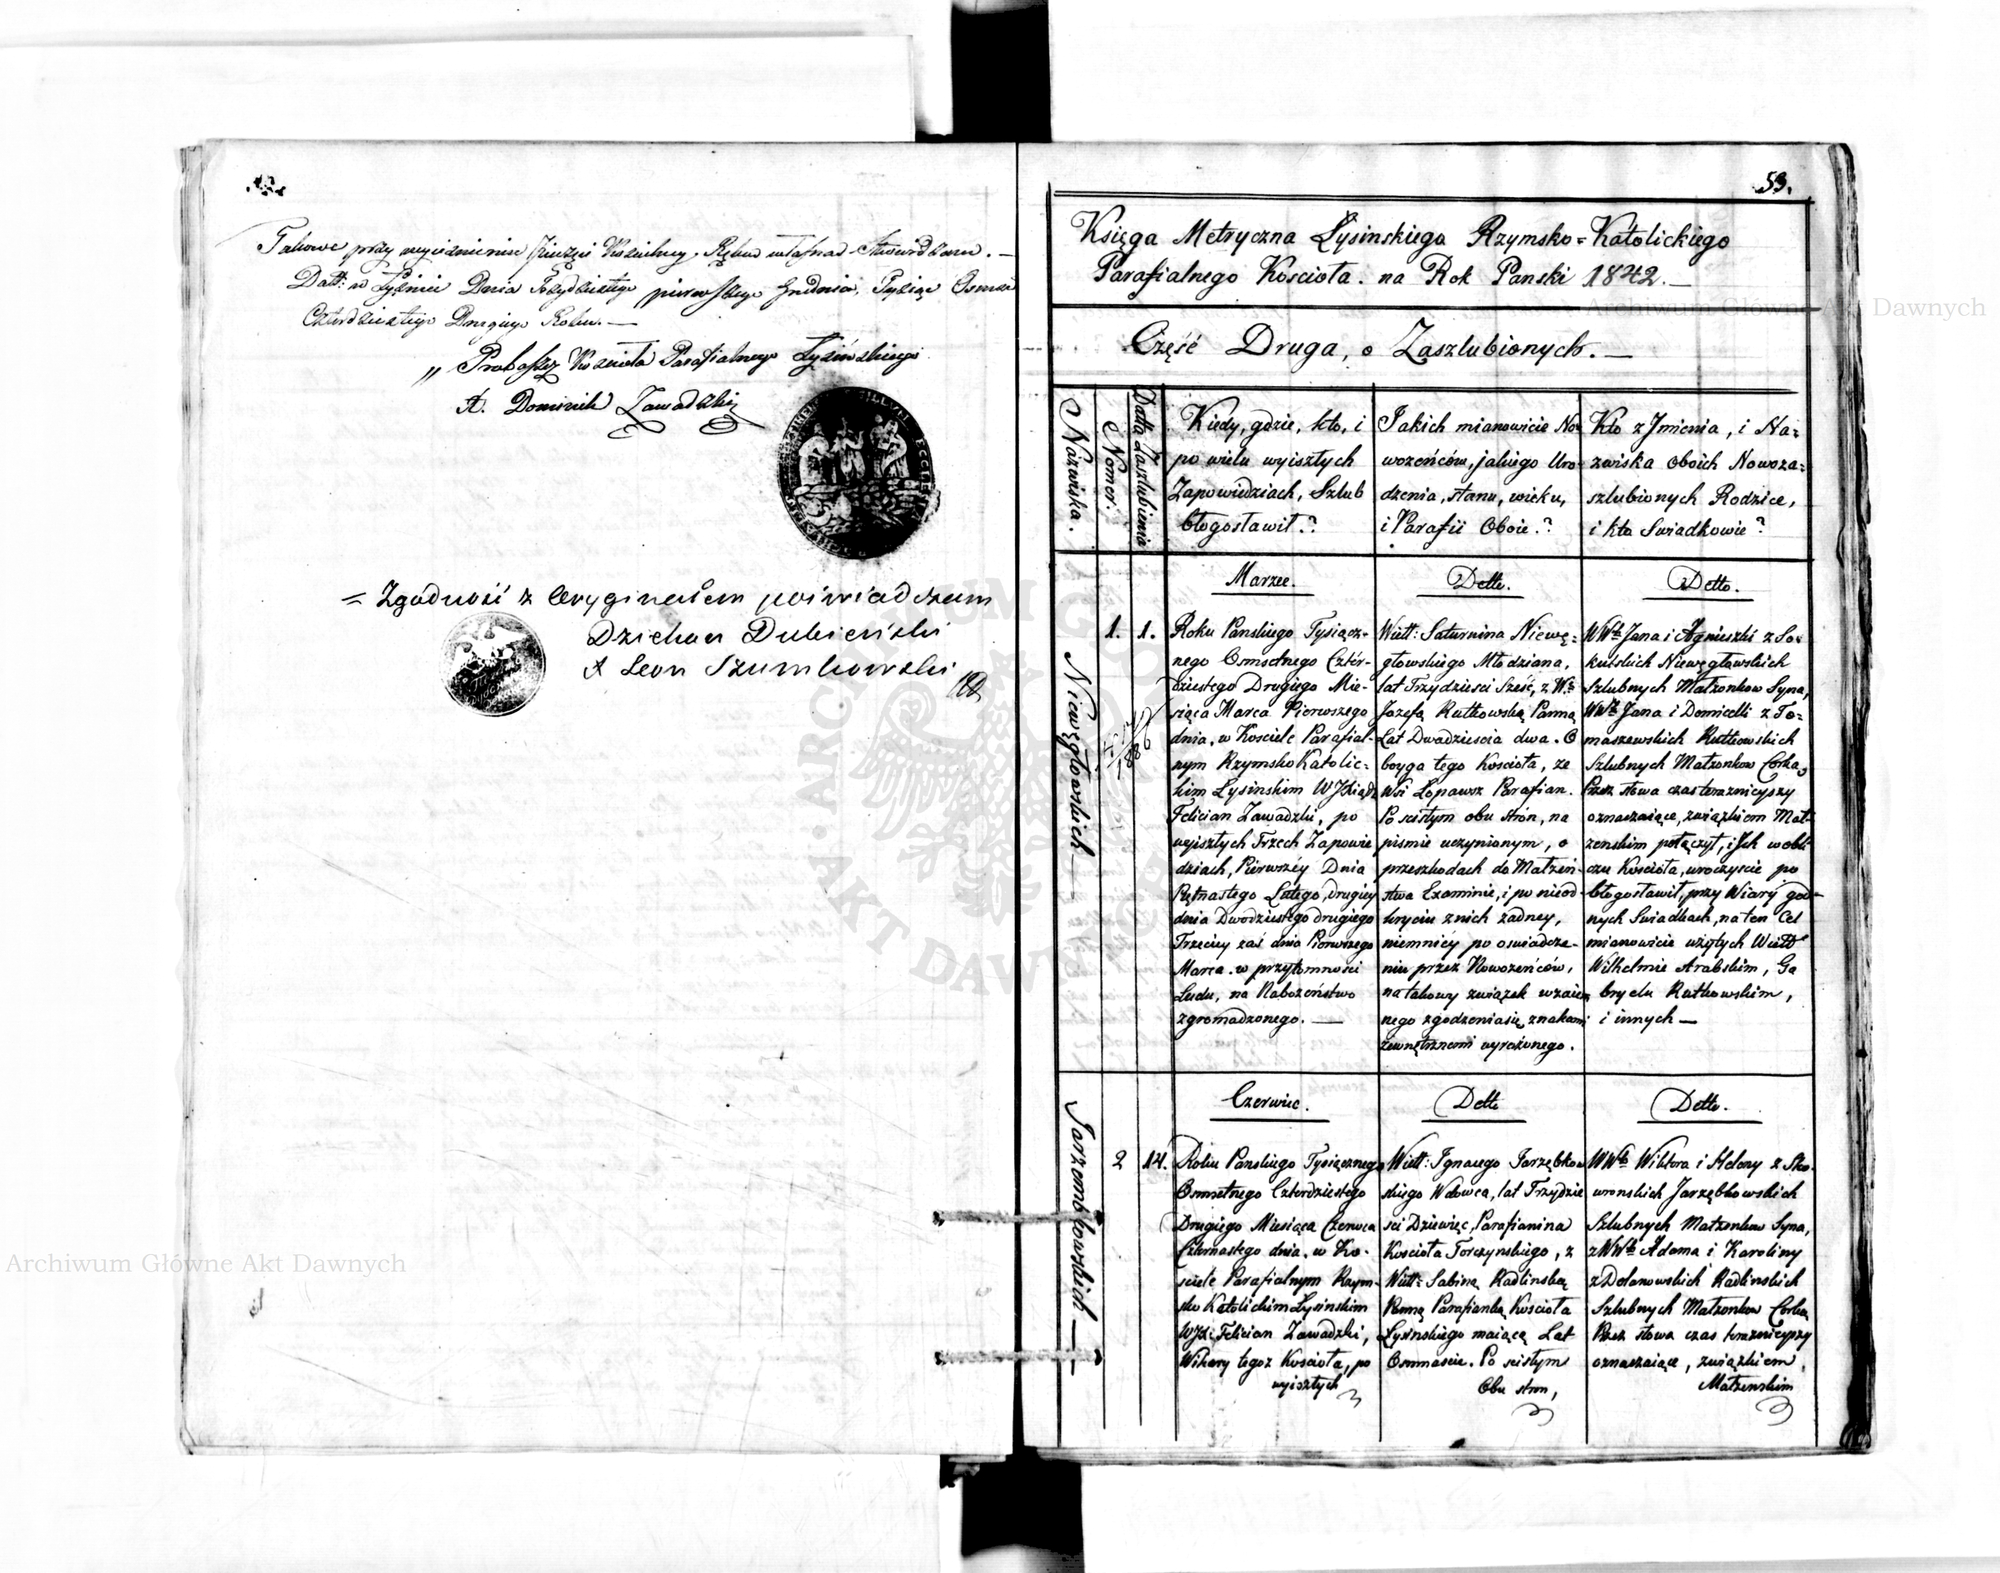 Takowe przy wyciśnieniu Pieczęci Kościelney, Ręką własną stwierdzam. —
Datt: w Łyśnie Dnia Trzydziestego pierwszego Grudnia, Tysiąc Osmset
Czterdziestego Drugiego Roku. —
„ Proboszcz Kościoła Parafialnego Łysińskiego
X. Dominik Zawadzki
= Zgodność z Oryginałem poświadczam
Dziekan Dubieński
X Leon Szumkowski
53.
Księga Metryczna Łysinskiego Rzymsko=Katolickiego
Parafialnego Kościoła. na Rok Panski 1842. —
Część Druga, o Zaszlubionych. —
Nazwiska.
Nomer.
Datta Zaszlubienia
Kiedy, gdzie, kto, i
po wielu wyiszłych
Zapowiedziach, Szlub
błogosławił.?
Jakich mianowicie No=
wożeńców, jakiego Uro=
dzenia, stanu, wieku,
i Parafii Oboie.?
Kto z Jmienia, i Na=
zwiska oboich Nowoza=
szlubionych Rodzice,
i kto Swiadkowie?
Marzec.
Detto.
Detto.
Niewęgłowskich —
1.
1.
Roku Panskiego Tysiącz=
nego Osmsetnego Czter-
dziestego Drugiego Mie-
siąca Marca Pierwszego
dnia, w Kosciele Parafial-
nym Rzymsko Katolic-
kim Łysinskim WJXiądz
Felician Zawadzki, po
wyiszłych Trzech Zapowie
dziach, Pierwszéy Dnia
Piętnastego Lutego, Drugiéy
dnia Dwodziestego drugiego
Trzeciéy zaś dnia Pierwszego
Marca. w przytomności
Ludu, na Nabożeństwo
zgromadzonego. —
Wiell: Saturnina Niewę=
głowskiego Młodziana,
lat Trzydziesci Sześć, z W:
Jozefą Rutkowską Panną
Lat Dwadziescia dwa. O
boyga tego Kościoła, ze
Wsi Łopawsz Parafian.
Po scisłym obu strón, na
pismie uczynionym, o
przeszkodach do Małżeń-
stwa Examinie, i po nieod-
kryciu z nich żadney,
niemniéy po oswiadcze-
niu przez Nowożeńców,
na takowy związek wzaiem
nego zgodzenia się, znakami
zewnętrznemi wyrażonego.
WWch Jana i Agnieszki z So-
kulskich Niewęgławskich
Szlubnych Małżonkow Syna,
WWch Jana i Domicelli z To=
maszewskich Rutkowskich
Szlubnych Małżonkow Corką,
Przez słowa czas terazniejszy
oznaczaiące, związkiem Mał-
żenskim połączył, i Ich w obli-
czu Kościoła, uroczyscie po
błogosławił, przy Wiary god-
nych Swiadkach, na ten Cel
mianowicie użytych Wiell
Wilhelmie Arabskim, Ga
bryelu Rutkowskim,
i innych —
Czerwiec.
Detto
Detto.
Jarzembkowskich —
2
14.
Roku Panskiego Tysiącznego
Osmsetnego Czterdziestego
Drugiego Miesiąca Czerwca
Czternastego dnia, w Ko-
sciele Parafialnym Rzym-
sko Katolickim Łysinskim
WJX: Felician Zawadzki,
Wikary tegoż Kościoła, po
wyiszłych
Wiell: Ignacego Jarzębkow
skiego Wdowca, lat Trzydzie
sci Dziewięć, Parafianina
Kościoła Torczynskiego, z
Wiell: Sabiną Radlinską
Panną Parafianką Kościoła
Łysinskiego maiącą Lat
Osmnascie. Po scisłym
Obu stron,
WWch Wiktora i Heleny z Sko-
wronskich Jarzębkowskich
Szlubnych Małżonkow Syna,
z WWch Adama i Karoliny
z Dolanowskich Radlinskich
Szlubnych Małżonkow Corką
Przez słowa czas terazniejszy
oznaczaiące, związkiem
Małżenskim
Archiwum Główne Akt Dawnych
Archiwum Główne Akt Dawnych
ARCHIWUM GŁÓWNE AKT DAWNYCH